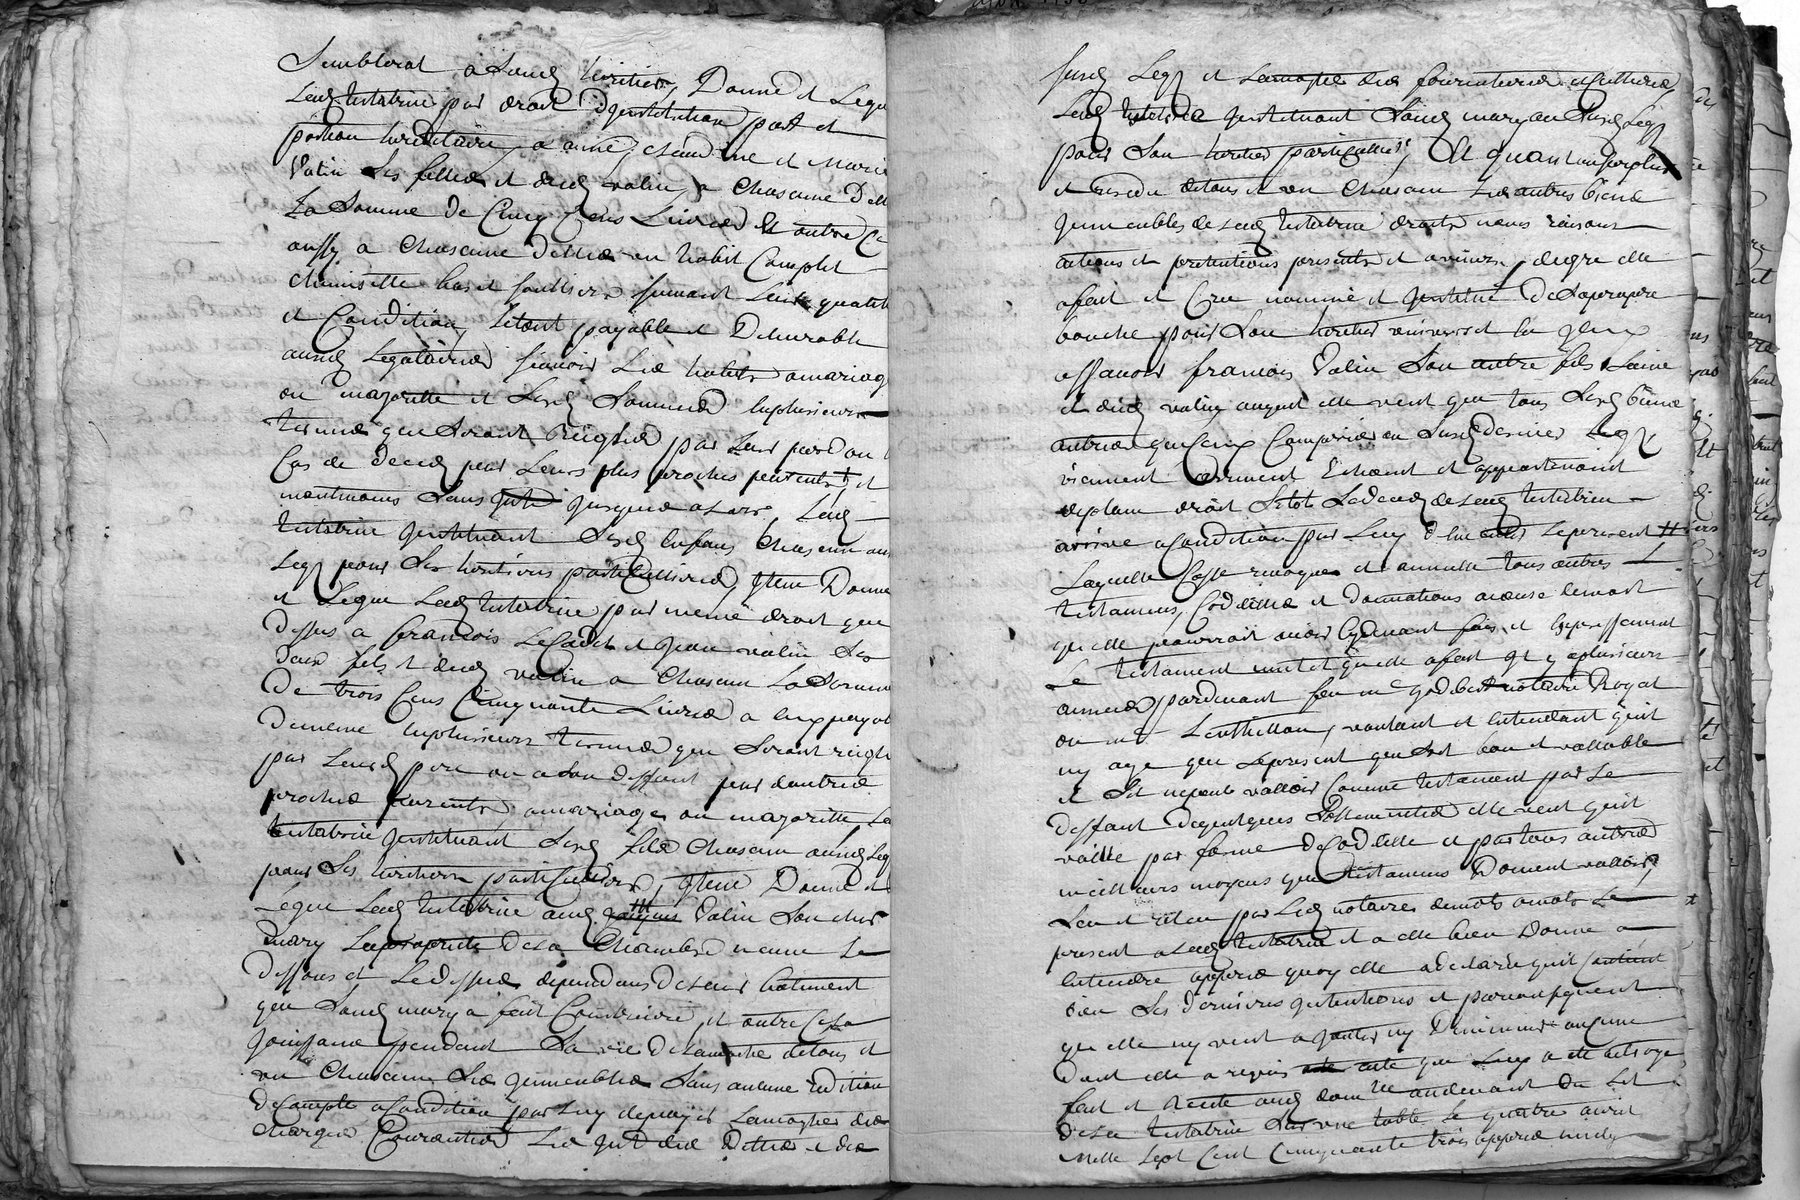 Semblerat a sond heritier, Donne et Legue
Lad testatrice par droit d'jnstitution part et
portion hereditaire a anne, claudine et Marie
Valin ses filles et dud valin a chascune d'elle
La Somme de Cinq Cens Livres Et outre Ce
aussy a chascune d'elles un habit Complet
chemisette bas et soulliers suivant leur qualité
et Condition, Létout payable et Delivrable
ausd Legataires scavoir Les habits a mariage
ou majorité et Lesd Sommes en plusieurs
termes que seront Reiglés par leur pere ou
Cas de deces par Leurs plus proches parents, et
neantmoins sans jnterest jusques alors Lad
testatrice jnstituant Lesd Enfans chascun aud
Legs pour ses heritiers particulliers, jtem Donne
et Legue Lad testatrice par meme droit que
dessus a francois Le Cadet et jean valin ses
deux fils et dud valin a chascun La somme
De trois Cens Cinquante Livres a eux payable
demême en plusieurs termes que seront reiglés
par Leurd pere ou a son deffaut par dautres
proches parents a mariage ou majorité La
testatrice jnstituant Lesd fils chascun ausd Legs
pour ses heritiers particulliers, jtem Donne et
Legue Lad testatrice aud Valin son cher
mary La proprieté de sa Chambre neuve Le
dessous et Le dessus dependans de leur batiment
que sond mary a fait Construire, et outre Ce la
jouissance pendant sa vie de la moitié de tous et
un chascun ses jmmeubles sans aucune reddition
de Compte a condition par luy de payer La moitié des
charges Courantes Les jnterets des Dettes et des
susd Legs et La moitié des fournitures et cultures
Lad testatrice jnstituant sond mary au susd Legs
pour son heritier particullier, Et quant au surplus
et residu de tous et un chascun ses autres biens
jmmeubles de Lad testatrice droits noms raisons
actions et pretentions presents et avenir, de gré elle
a fait et Cree nommé et jnstitué De sa propre
bouche pour son heritier universel
a scavoir francois Valin son autre fils Lainé
et dud valin auquel elle veut que tous Lesd biens
autres que Ceux Compris en susd dernier Legs
viennent arrivent Echoient et appartienent
de plain droit sitot Le deces de Lad testatrice
arrivé a Condition par Luy
Laquelle Casse revoque et annulle tous autres
testamens, Codicilles et donnations a cause de mort
qu'elle pourroit avoir Cydevant fais et Expressement
Le testament qu'elle a fait jl y a plusieurs
années pardevant feu me godbert notaire Royal
ou me voulant et Entendant qu'il
ny aye que Le present que soit bon et vallable
et s'il ne peut valloir Comme testament par Le
deffaut de quelques sollemnités elle veut qu'il
vaille par forme de Codicille et par tous autres
meilleurs moyens que testamens Doivent valloir,
Leu et releu par Led notaire de mot a mot Le
present a Lad testatrice et a elle bien Donné a
Entendre apprès quoy elle a declaré qu'il Contient
bien ses dernieres jntentions et par consequent
qu'elle ny veut ajouter ny Diminuer aucune
Dont elle a requis acte que Luy a eté octroyé
fait et recité aud domlle au devant du Lit
de La testatrice sur une table Le quatre avril
Mille Sept Cent Cinquante trois apprès midy